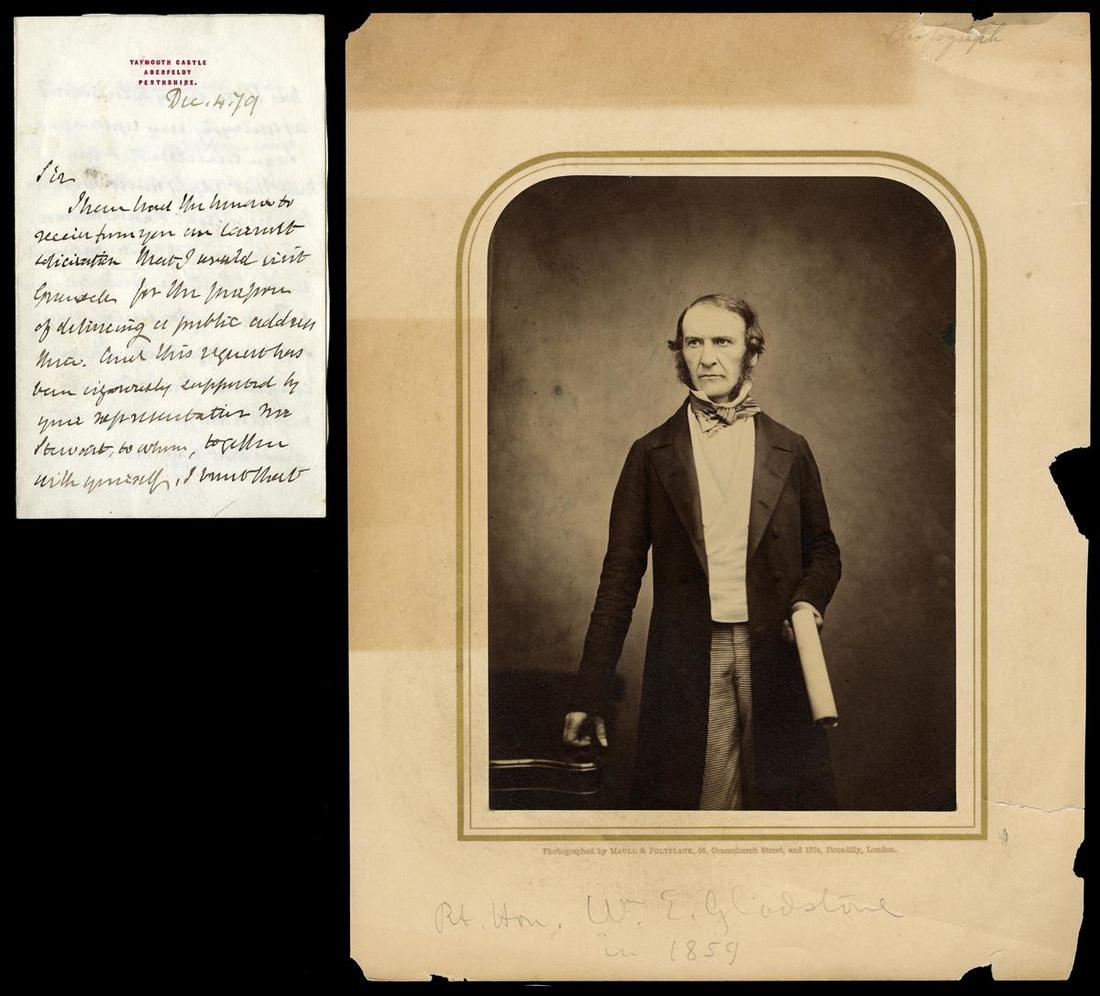 TAYMOUTH CASTLE
ABERFELDY
PERTHSHIRE.
Dec. 4. 79
Sir
I have had the honour to
receive from you an earnest
solicitation that I would visit
for the purpose
of delivering a public address
there. And this request has
been vigorously supported by
your representative Mr
Stewart, to whom, together
with yourself, I trust that
Photograph
Photographed by MAULL & POLYBLANK, 55, Gracechurch Street, and 187a, Piccadilly, London.
Rt. Hon. Wm. E. Gladstone
in 1859